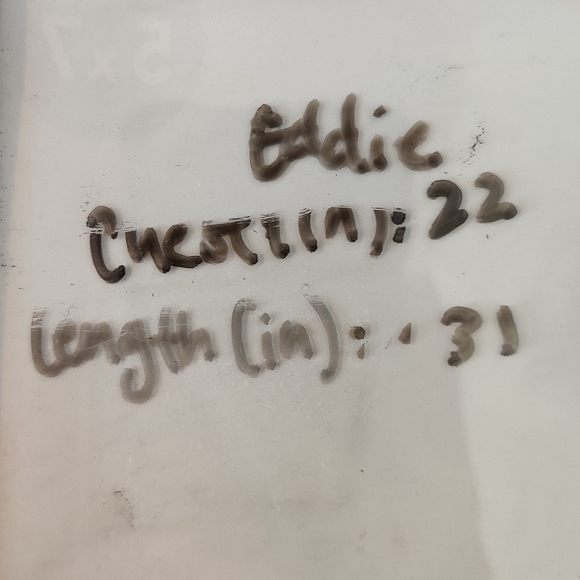 Eddie
Chest (in): 22
length (in): 31